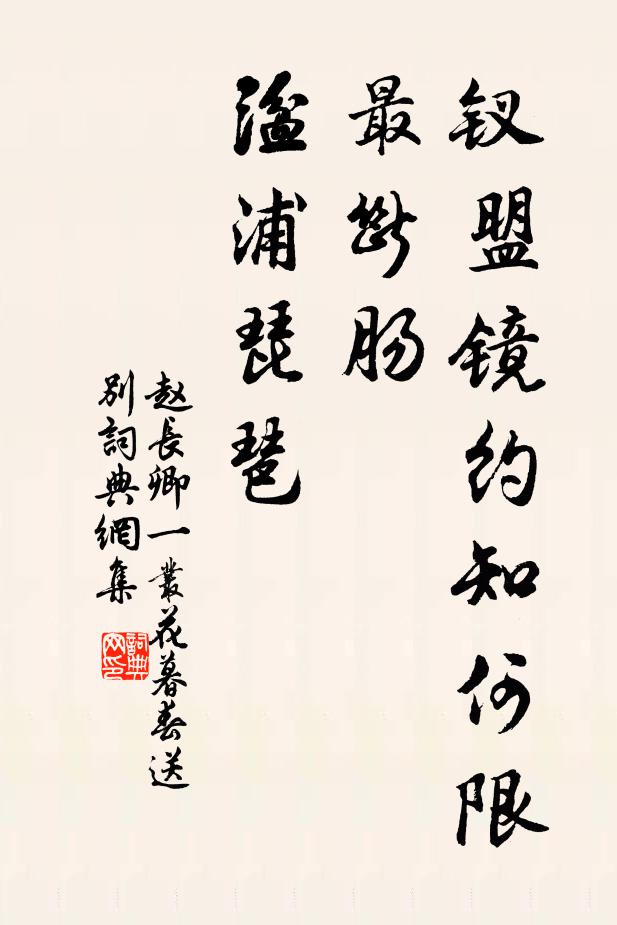 钗盟镜约知何限
最断肠
湓浦琵琶
赵長卿一叢花暮春送
別詞典網集
詞典网印